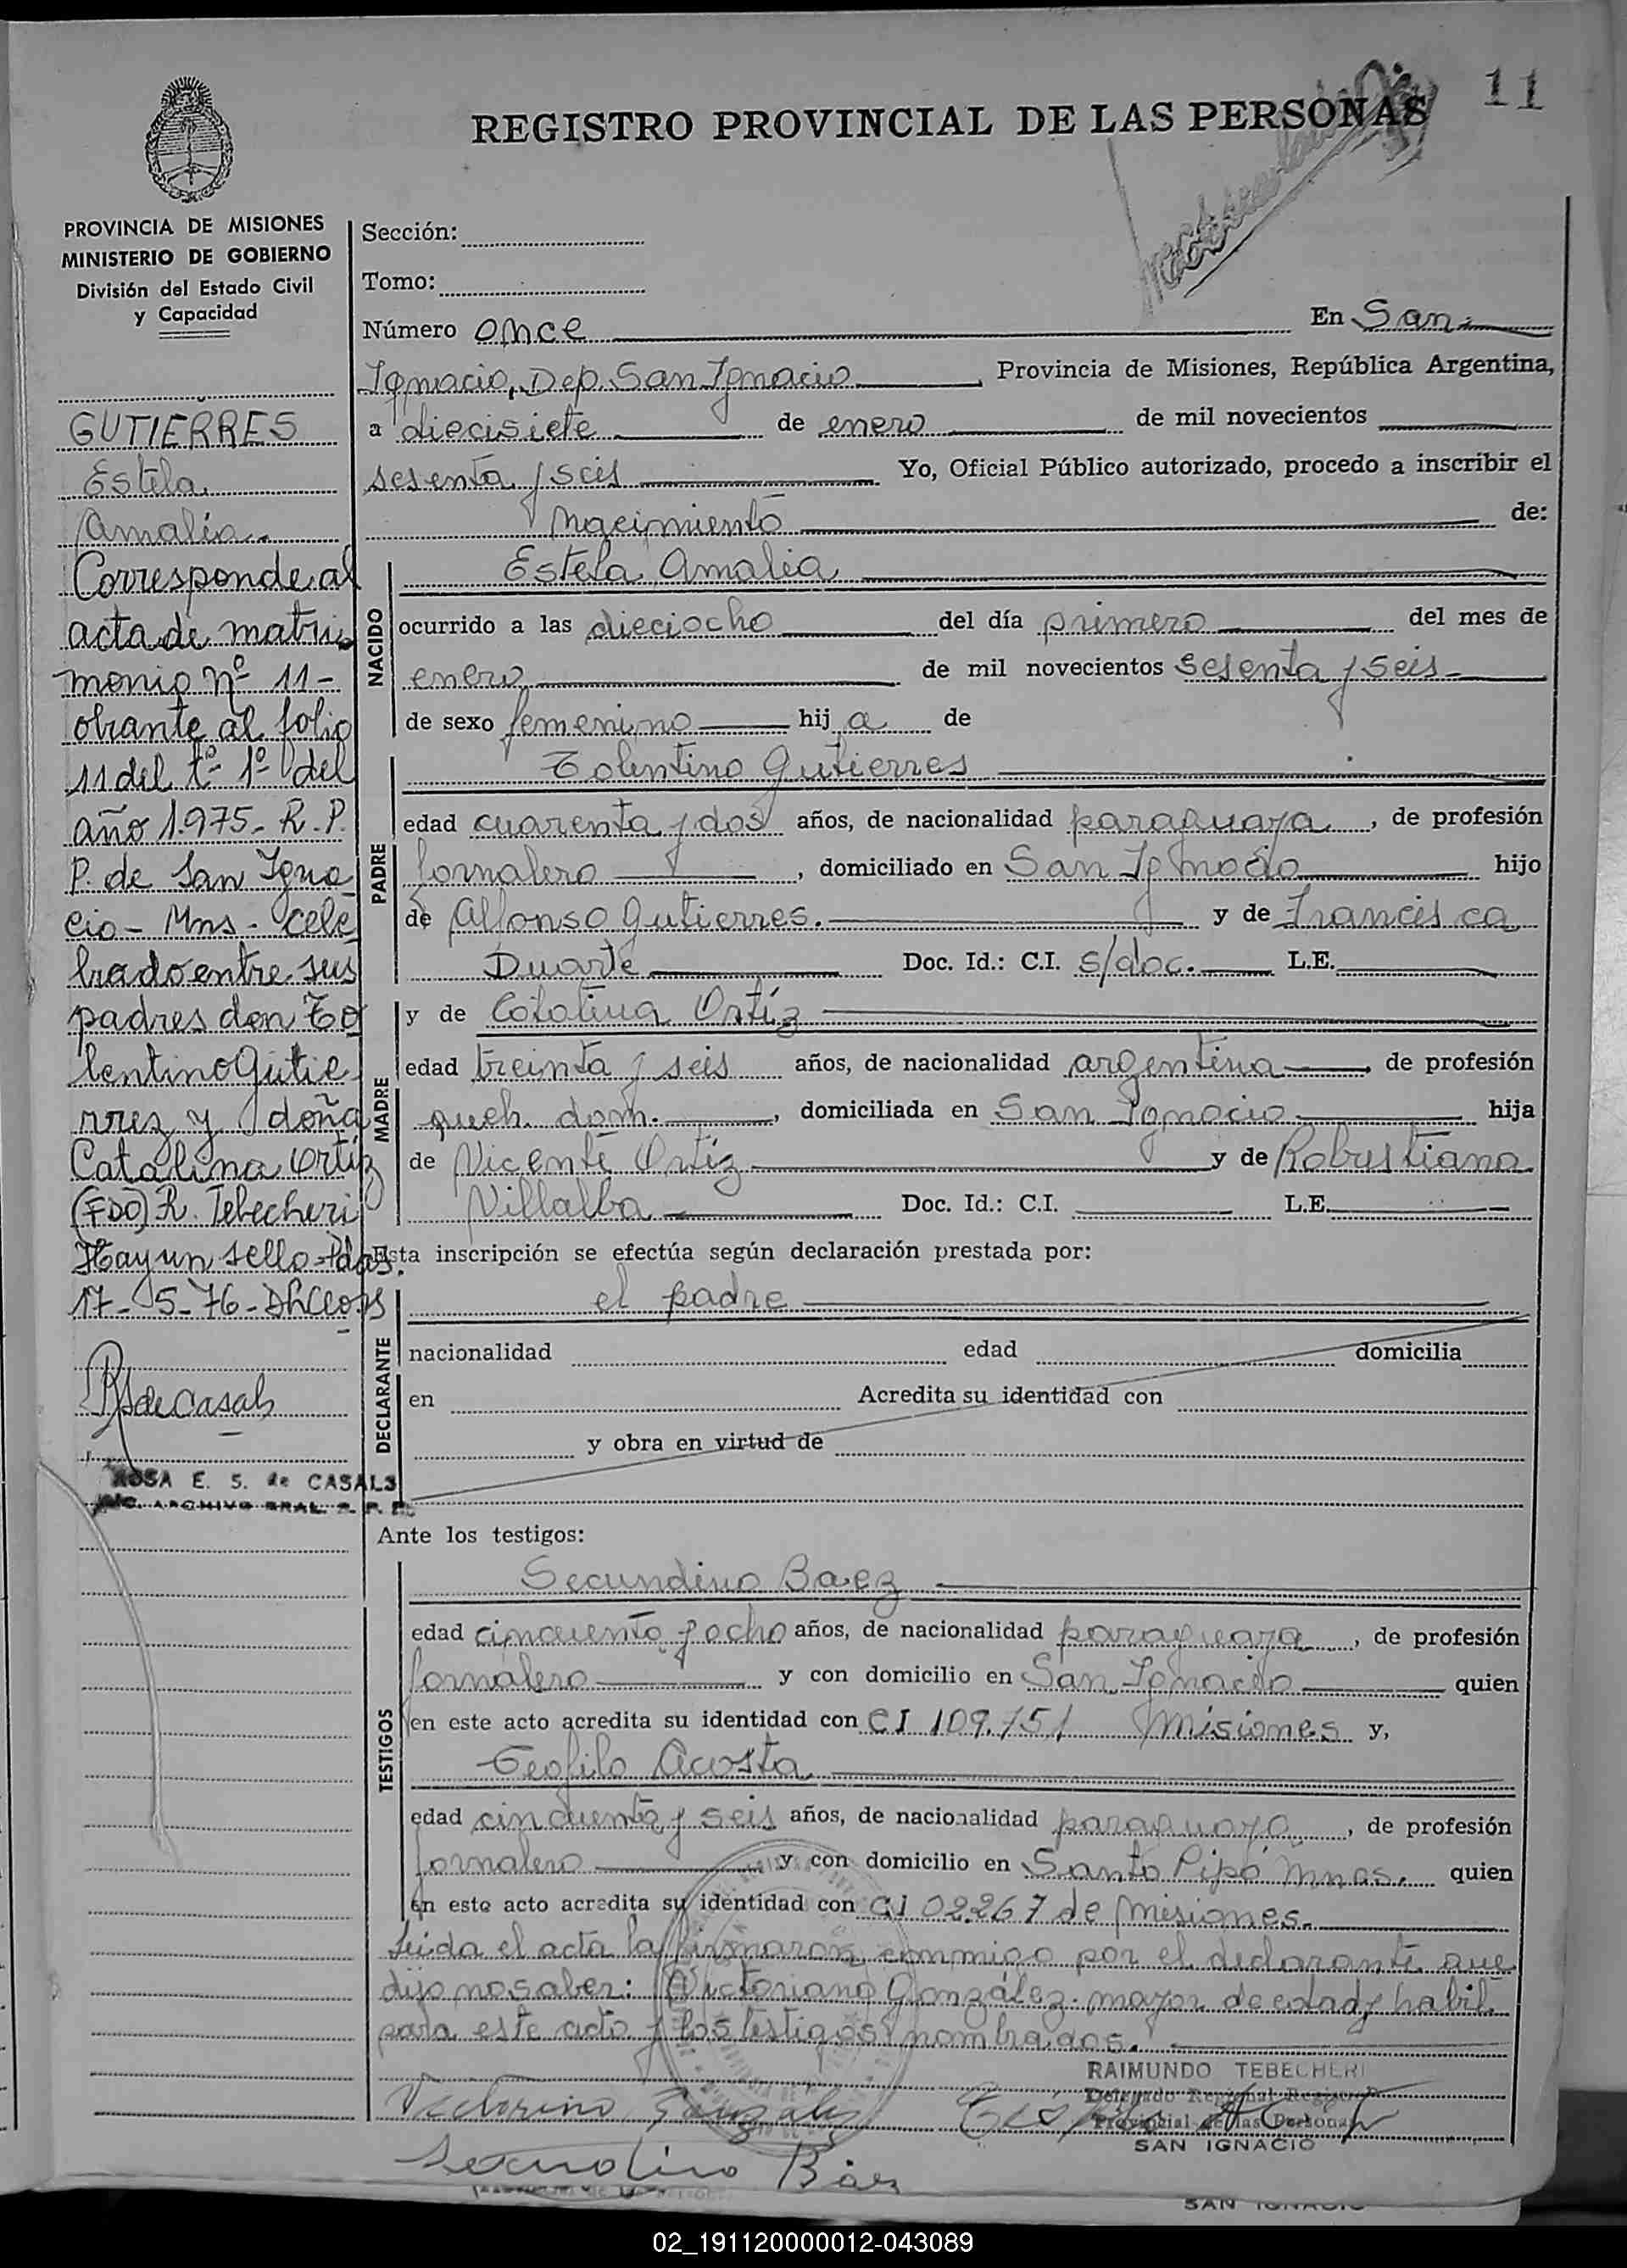 REGISTRO PROVINCIAL DE LAS PERSONAS
11
PROVINCIA DE MISIONES
MINISTERIO DE GOBIERNO
División del Estado Civil
y Capacidad
GUTIERRES
Estela
Amalia
Corresponde al
acta de matri
monio nº 11-
obrante al folio
11 del tº 1º del
año 1.975- R.P.
P. de San Igna
cio - Mns - cele
brado entre sus
padres don To
lentino Gutie
rrez y doña
Catalina Ortiz
(FDO) R. Tebecheri
Hay un sello - Pdas.
17-5-76-
ROSA E. S. de CASALS
Sección:
Tomo:
Número once En San
Ignacio, Dep. San Ignacio, Provincia de Misiones, República Argentina,
a diecisiete de enero de mil novecientos
sesenta y seis Yo, Oficial Público autorizado, procedo a inscribir el
nacimiento de:
NACIDO
Estela Amalia
ocurrido a las dieciocho del día primero del mes de
enero de mil novecientos sesenta y seis
de sexo femenino hija de
PADRE
Tolentino Gutierres
edad cuarenta y dos años, de nacionalidad paraguaya, de profesión
Jornalero, domiciliado en San Ignacio hijo
de Alfonso Gutierres. y de Francisca
Duarte Doc. Id.: C.I. s/doc. L.E.
MADRE
y de Catalina Ortíz
edad treinta y seis años, de nacionalidad argentina, de profesión
queh. dom., domiciliada en San Ignacio hija
de Vicente Ortiz y de Robustiana
Villalba Doc. Id.: C.I. L.E.
Esta inscripción se efectúa según declaración prestada por:
DECLARANTE
el padre
nacionalidad edad domicilia
en Acredita su identidad con
y obra en virtud de
Ante los testigos:
TESTIGOS
Secundino Baez
edad cincuenta y ocho años, de nacionalidad paraguaya, de profesión
Jornalero y con domicilio en San Ignacio quien
en este acto acredita su identidad con CI 109.151 Misiones y,
Teofilo Acosta
edad cincuenta y seis años, de nacionalidad paraguaya, de profesión
Jornalero y con domicilio en Santo Pipó Mnas. quien
en este acto acredita su identidad con CI 02.267 de Misiones.
Leida el acta la firmaron conmigo por el declarante que
dijo no saber: Victoriano González mayor de edad y habil
para este acto y los testigos nombrados.
RAIMUNDO TEBECHERI
Delegado Regional Registro
Provincial de las Personas
SAN IGNACIO
Victorino Gonzalez
Secundino Báez
SAN IGNACIO
02_191120000012-043089